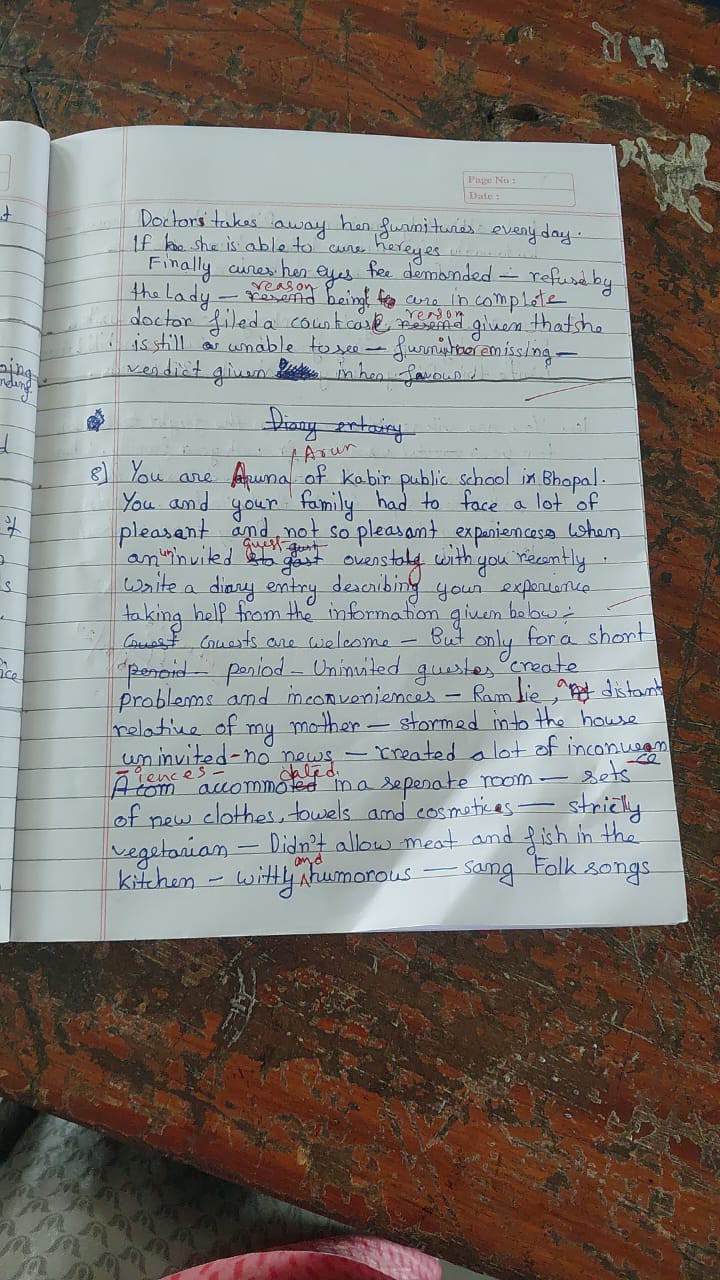 Page No :
Date :
Doctors takes away her furnitures everyday.
If she is able to cure her eyes
Finally cures her eyes fee demanded – refuse by
the lady – reason being cure in complete
doctor filed a court case reason given that she
is still unable to see – furniture missing –
verdict given in her favour.
Diary entairy
8] You are Aruna / Arun of Kabir public school in Bhopal.
You and your family had to face a lot of
pleasant and not so pleasant experiences when
an uninvited guest overstay with you recently.
Write a diary entry describing your experience
taking help from the information given below :-
Guests are welcome – But only for a short
period – Uninvited guestes create
problems and inconveniences – Ramlie, a distant
relative of my mother – stormed into the house
uninvited – no news – created a lot of inconven
iences – accommodated in a seperate room – sets
of new clothes, towels and cosmetices – stricly
vegetarian – Didn't allow meat and fish in the
kitchen – witty and humorous – sang Folk songs